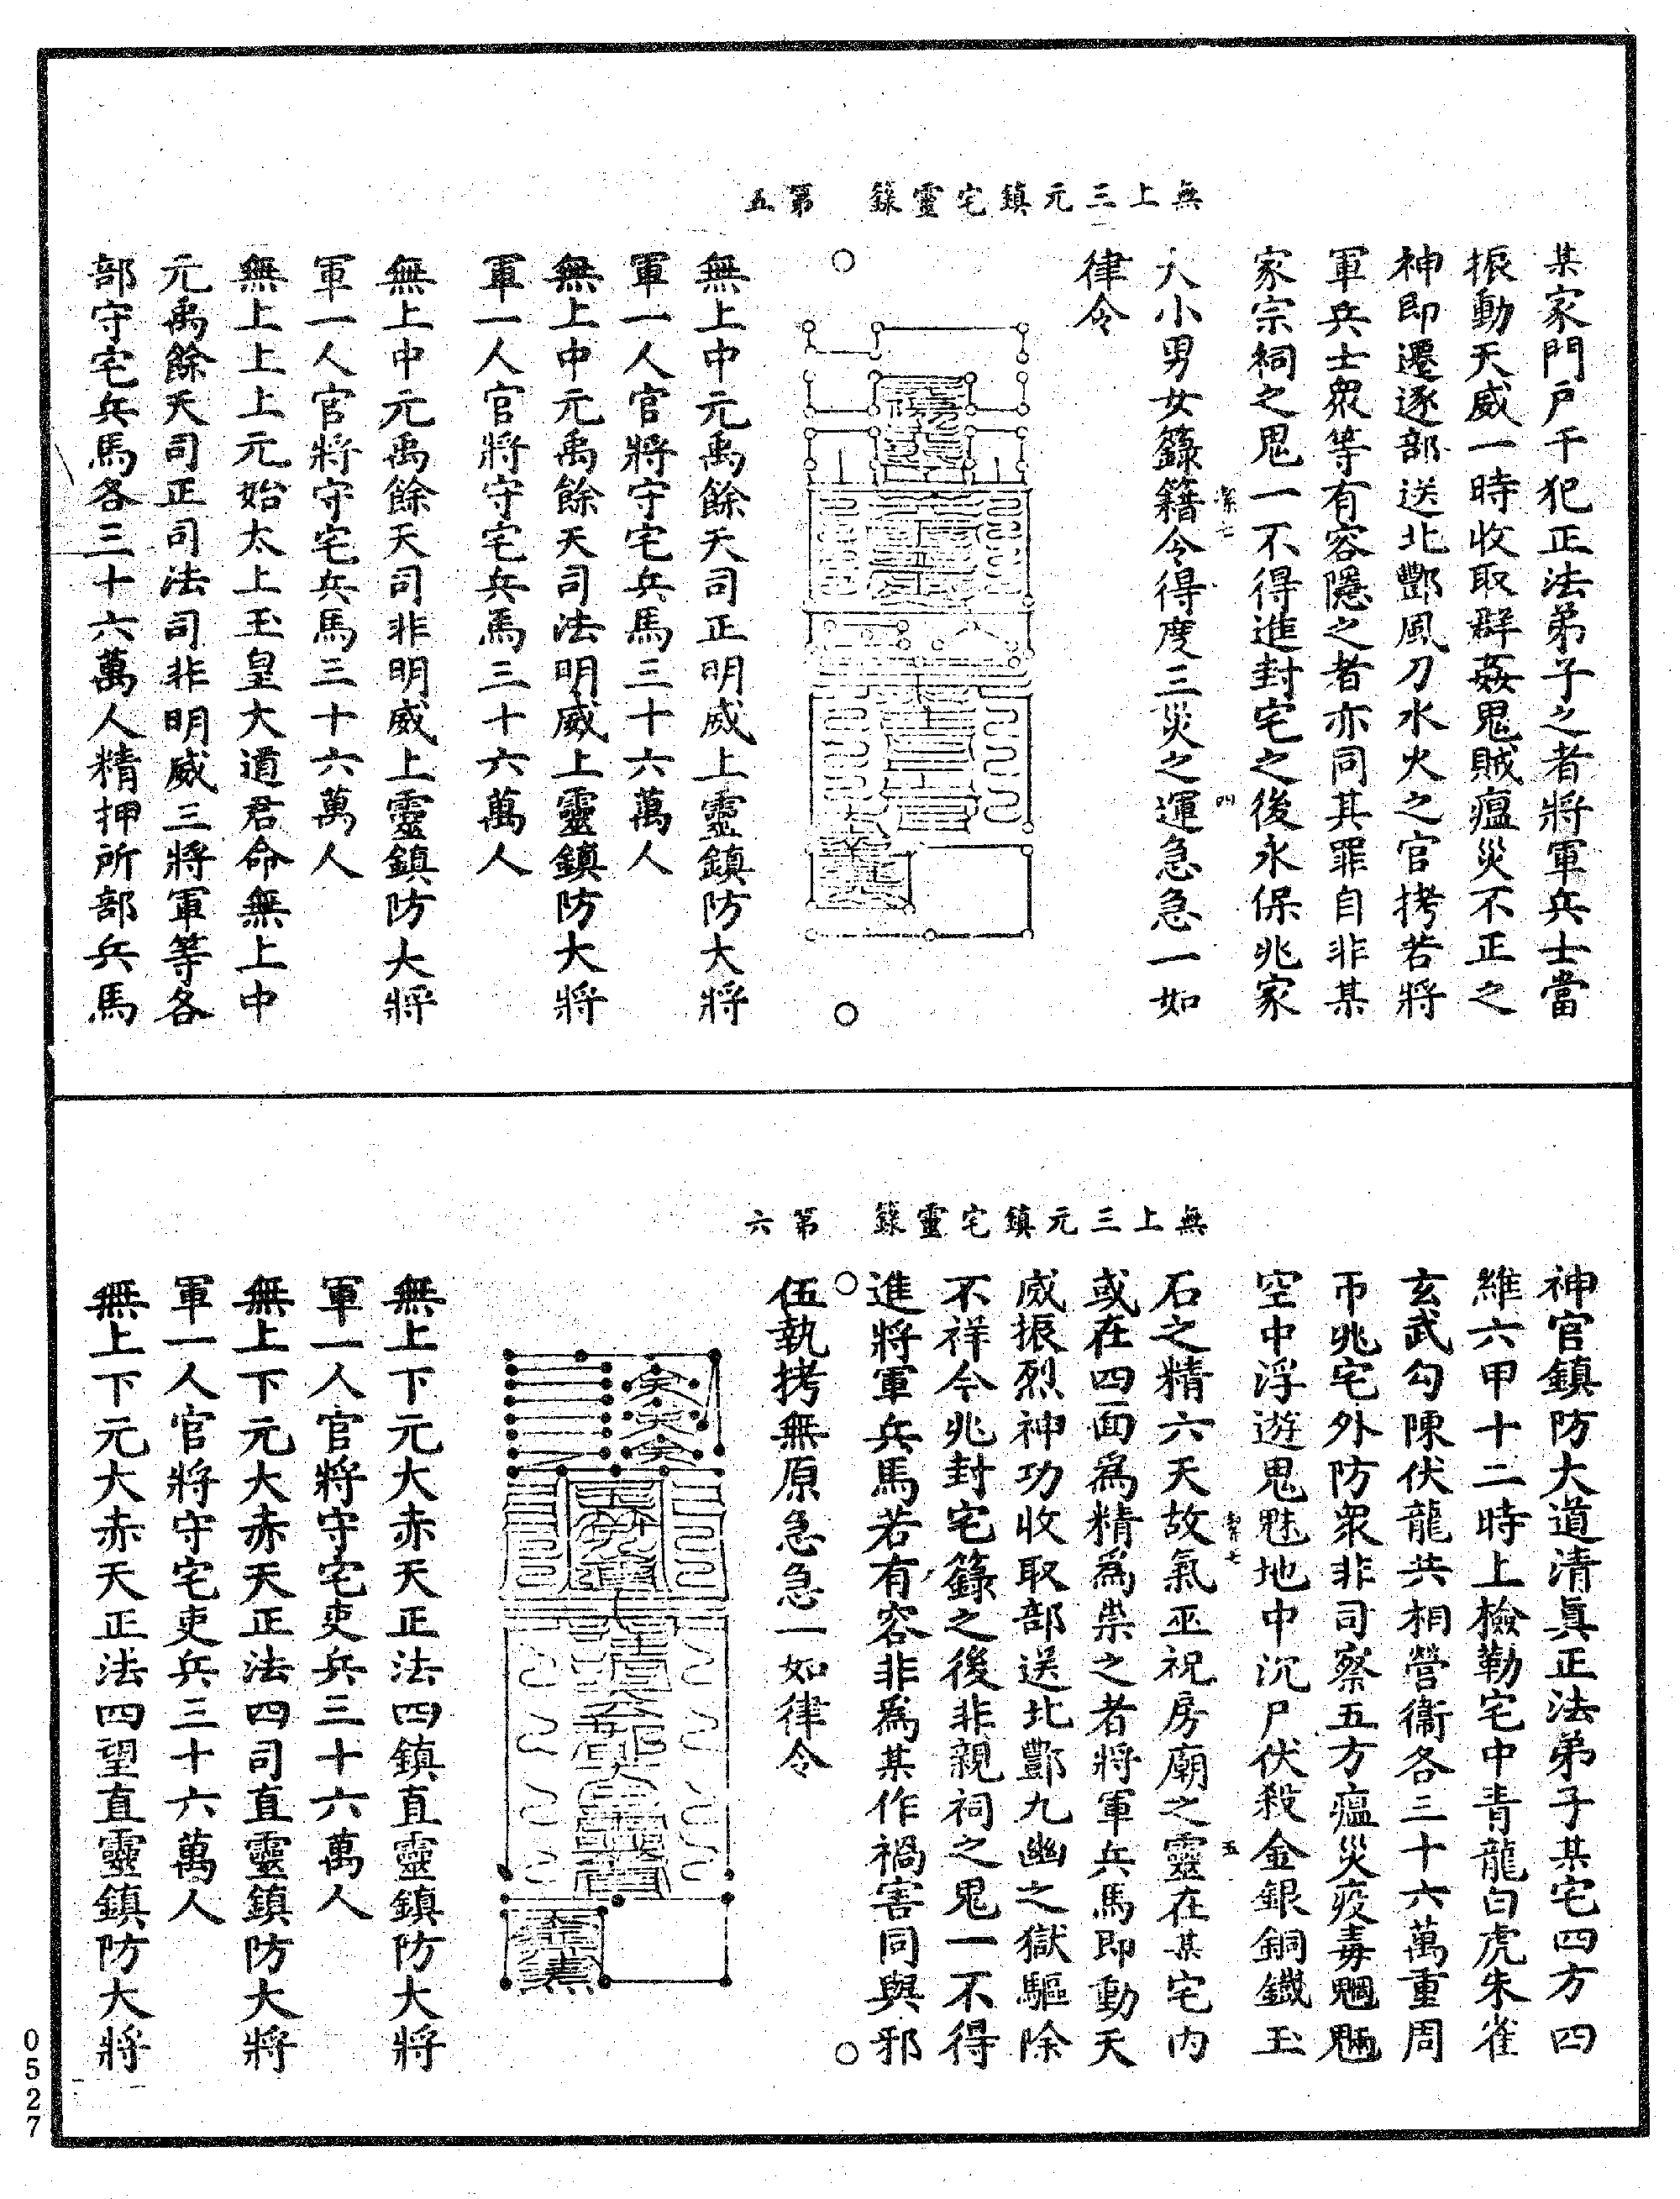 無上三元鎮宅靈籙　第五
某家門戶干犯正法弟子之者將軍兵士當
振動天威一時收取群姦鬼賊瘟災不正之
神即遷逐部送北酆風刀水火之官拷若將
軍兵士衆等有容隱之者亦同其罪自非某
家宗祠之鬼一不得進封宅之後永保兆家
大小男女籙籍令得度三災之運急急一如
律令
無上中元禹餘天司正明威上靈鎮防大將
軍一人官將守宅兵馬三十六萬人
無上中元禹餘天司法明威上靈鎮防大將
軍一人官將守宅兵馬三十六萬人
無上中元禹餘天司非明威上靈鎮防大將
軍一人官將守宅兵馬三十六萬人
無上上上元始太上玉皇大道君命無上中
元禹餘天司正司法司非明威三將軍等各
部守宅兵馬各三十六萬人精押所部兵馬
無上三元鎮宅靈籙　第六
神官鎮防大道清真正法弟子某宅四方四
維六甲十二時上檢勒宅中青龍白虎朱雀
玄武勾陳伏龍共相營衞各三十六萬重周
帀兆宅外防衆非司察五方瘟災疫毒魍魎
空中浮遊鬼魅地中沉尸伏殺金銀銅鐵玉
石之精六天故氣巫祝房廟之靈在某宅内
或在四面爲精爲祟之者將軍兵馬即動天
威振烈神功收取部送北酆九幽之獄驅除
不祥令兆封宅籙之後非親祠之鬼一不得
進將軍兵馬若有容非爲某作禍害同與邪
伍執拷無原急急一如律令
無上下元大赤天正法四鎮直靈鎮防大將
軍一人官將守宅吏兵三十六萬人
無上下元大赤天正法四司直靈鎮防大將
軍一人官將守宅吏兵三十六萬人
無上下元大赤天正法四望直靈鎮防大將
0527